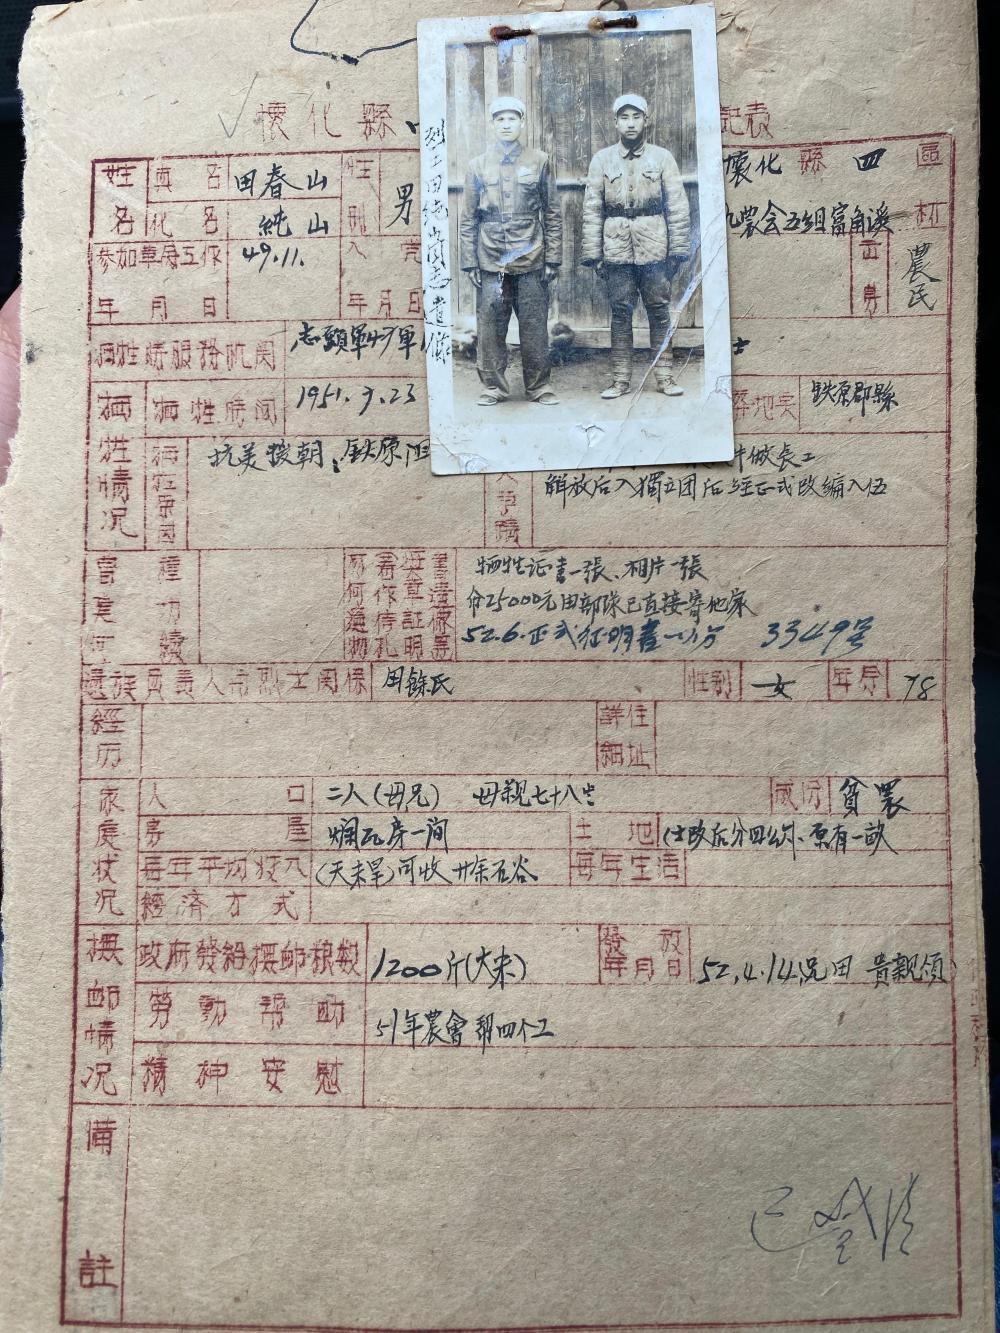 懷化縣 記表
姓名 真名 田春山 性別 男 懷化縣 四 區
化名 純山 九農会五組富角溪 村
参加革命工作年月日 49.11. 入党年月日 出身 農民
牺牲時服務机関 志願軍47軍 士
牺牲情况 牺牲時间 1951.9.23 地点 鉄原郡縣
牺牲原因 抗美援朝，鉄原 做長工
解放后入獨立团后経正式改編入伍
曾立何種功績 牺牲证書一張、相片一張
分25000元由部隊已直接寄他家
52.6.正式征明書一分 3349号
遺族負責人与烈士関係 田餘氏 性别 女 年令 78
經历 詳細住址
家庭状况 人口 二人(母兄) 母親七十八岁 成份 貧農
房屋 爛瓦房一间 土地 (土改后分四公外、原有一畝
每年平均收入 (天未旱)可收廿余石谷 每年生活
經济方式
撫卹情况 政府發給撫卹粮数 1200斤(大米) 發放年月日 52.4.14.兄田 貴親領
勞動帮助 51年農會帮四个工
精神安慰
備註
已登
烈士田純山同志遺像